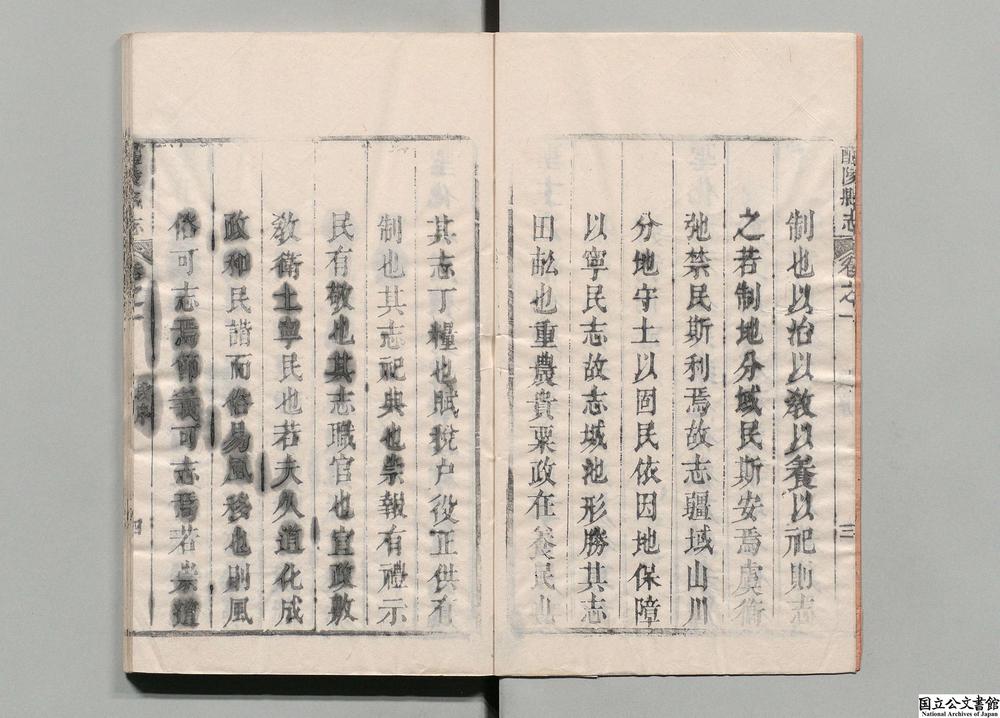 醴陵縣志 卷之一 三
制也以治以敎以養以祀則志
之若制地分域民斯安焉虞衡
弛禁民斯利焉故志疆域山川
分地守土以固民依因地保障
以寧民志故志城池形勝其志
田畝也重農貴粟政在養民也
其志丁糧也賦稅户役正供有
制也其志祀典也崇報有禮示
民有敬也其志職官也宣政敷
敎衛士寧民也若夫久道化成
政和民諧而俗易風移也則風
俗可志焉節義可志焉若崇
醴陵縣志 卷之一 四
国立公文書館
National Archives of Japan